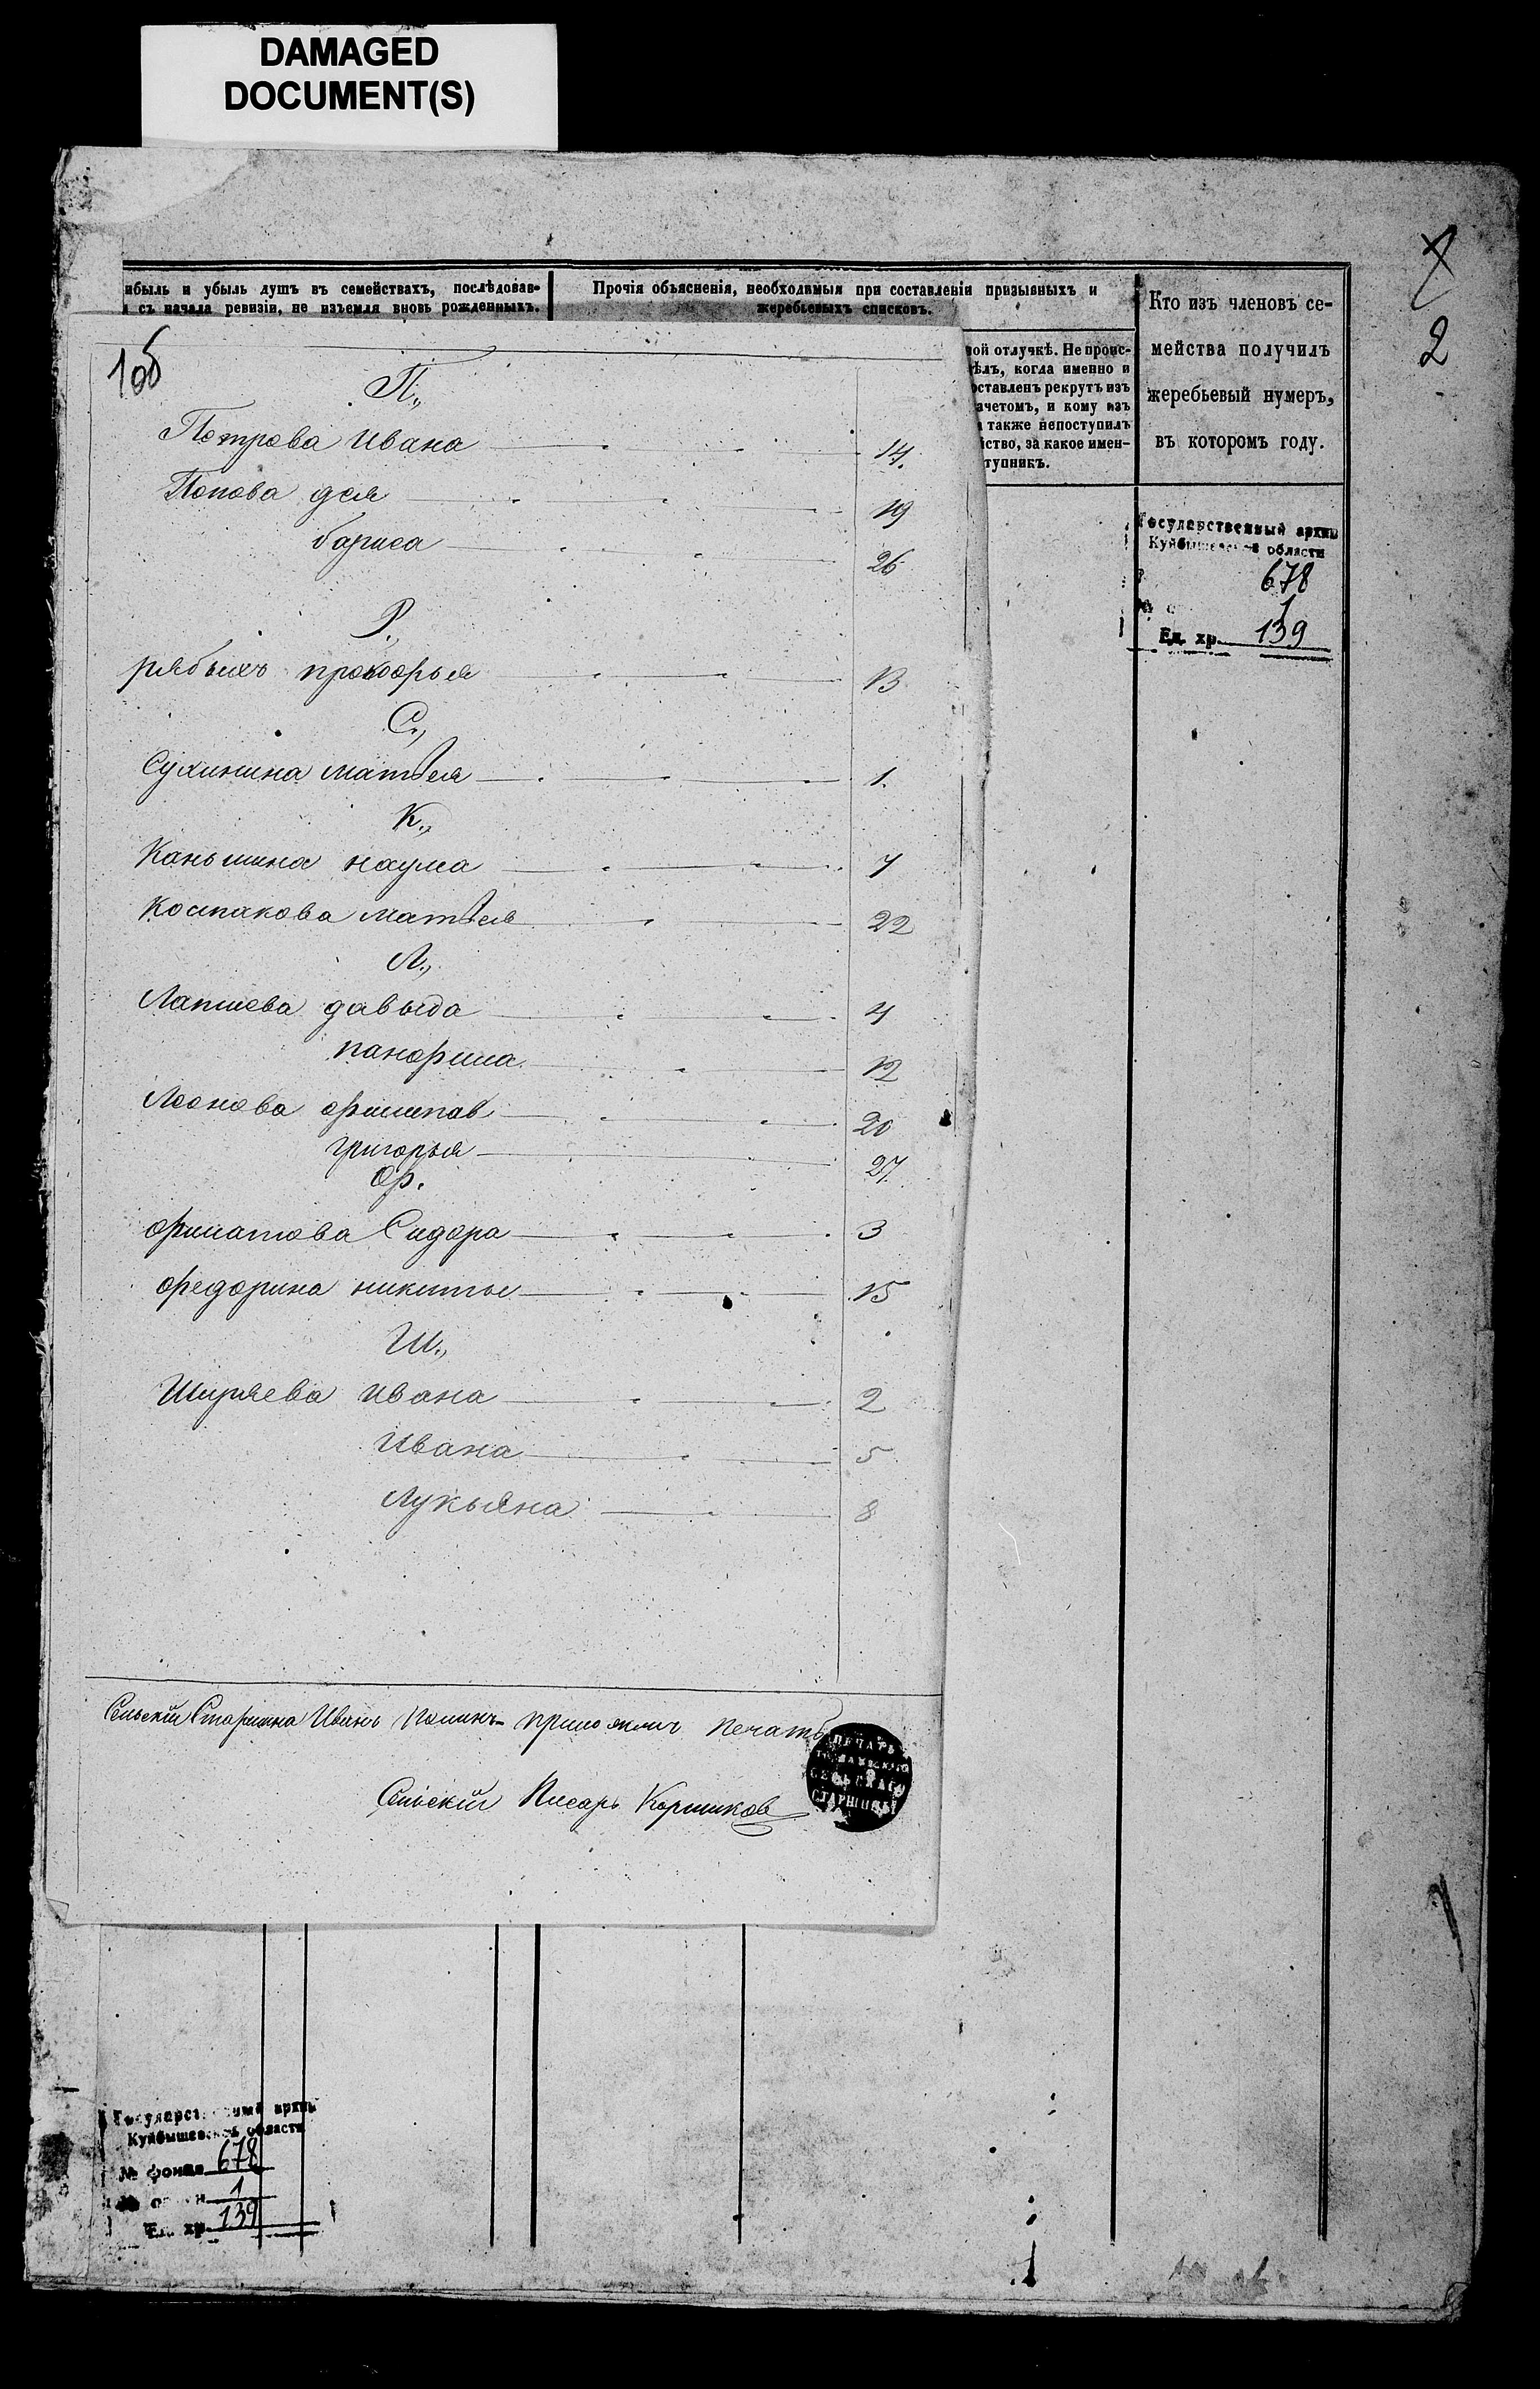 DAMAGED
DOCUMENT(S)
ибыль и убыль душъ въ семействахъ, послѣдовав-
съ начала ревизіи, не изъемля вновь рожденныхъ.
Прочія объясненія, необходимыя при составленіи призывныхъ и
жеребьевыхъ списковъ.
ной отлучкѣ. Не проис-
ѣлъ, когда именно и
оставленъ рекрутъ изъ
ачетомъ, и кому изъ
а также непоступилъ
йство, за какое имен-
тупникъ.
Кто изъ членовъ се-
мейства получилъ
жеребьевый нумеръ,
въ которомъ году.
2
1об
П.,
Петрова Ивана 14.
Попова 19
бариса 26
Р.,
рябыхъ прокофья 13
С.,
Сухинина матвея 1.
К.,
Каньшина наума 7
Колпакова матвея 22
Л.,
Лапшева давыда 4
панфила 12
Леонова филипав 20
григорья 27
Ф.
филатова Сидора 3
федорина никиты 15
Ш.,
Ширяева Ивана 2
Ивана 5
Лукьяна 8
Сельскій Старшина Иванъ приложилъ печать
Сельскій Писарь Коршиков
ПЕЧАТЬ
СЕЛЬСКАГО
СТАРШИНЫ
Государственный архив
Куйбышевской области
678
1
Ед. хр. 139
Государственный архив
Куйбышевской области
№ фонда 678
№ описи 1
Ед. хр. 139
1